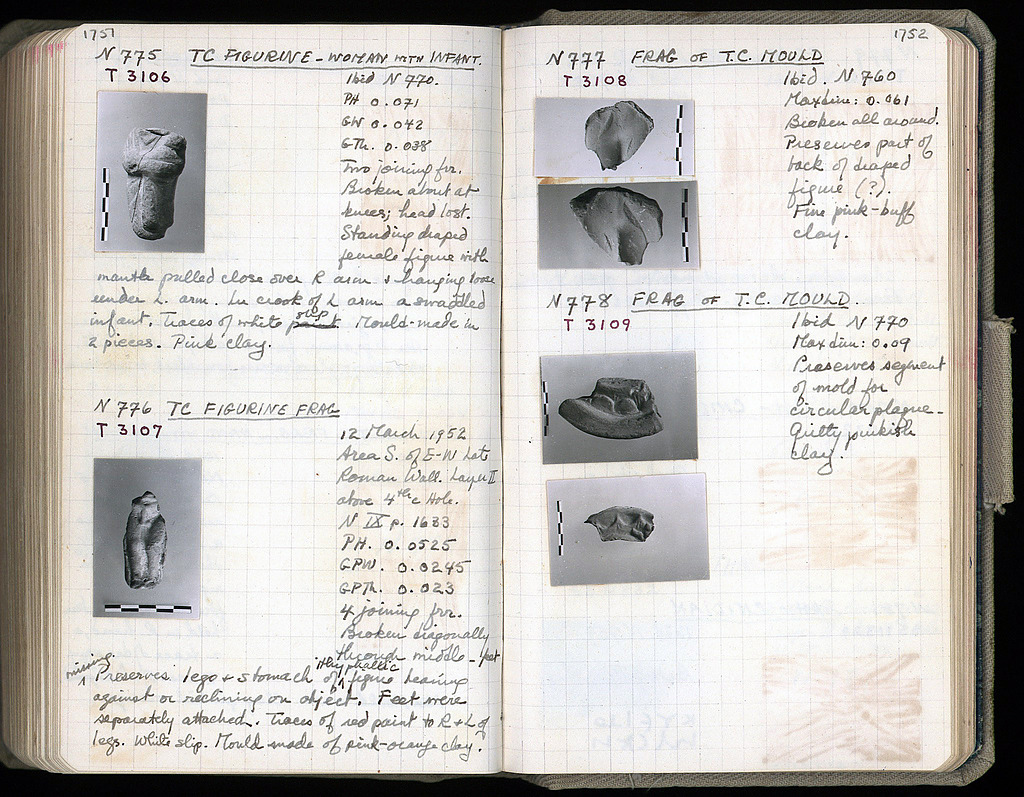 1751
N 775 TC FIGURINE - WOMAN WITH INFANT.
T 3106
Ibid N 770.
PH 0.071
GW 0.042
GTh. 0.038
Two joining frr.
Broken about at
knees; head lost.
Standing draped
female figure with
mantle pulled close over R arm & hanging loose
under L. arm. In crook of L arm a swaddled
infant. Traces of white paint slip. Mould-made in
2 pieces. Pink clay.
N 776 TC FIGURINE FRAG
T 3107
12 March 1952
Area S. of E-W Late
Roman Wall. Layer II
above 4th c Hole.
N IX p. 1683
PH. 0.0525
GPW. 0.0245
GPTh. 0.023
4 joining frr.
Broken diagonally
through middle - feet
missing.
Preserves legs & stomach of ithyphallic figure leaning
against or reclining on object. Feet were
separately attached. Traces of red paint to R & L of
legs. White slip. Mould made of pink-orange clay.
1752
N 777 FRAG OF T.C. MOULD
T 3108
Ibid. N 760
Max dim: 0.061
Broken all around.
Preserves part of
back of draped
figure (?).
Fine pink-buff
clay.
N 778 FRAG OF T.C. MOULD.
T 3109
Ibid N 770
Max dim: 0.09
Preserves segment
of mold for
circular plaque.
Gritty pinkish
clay.